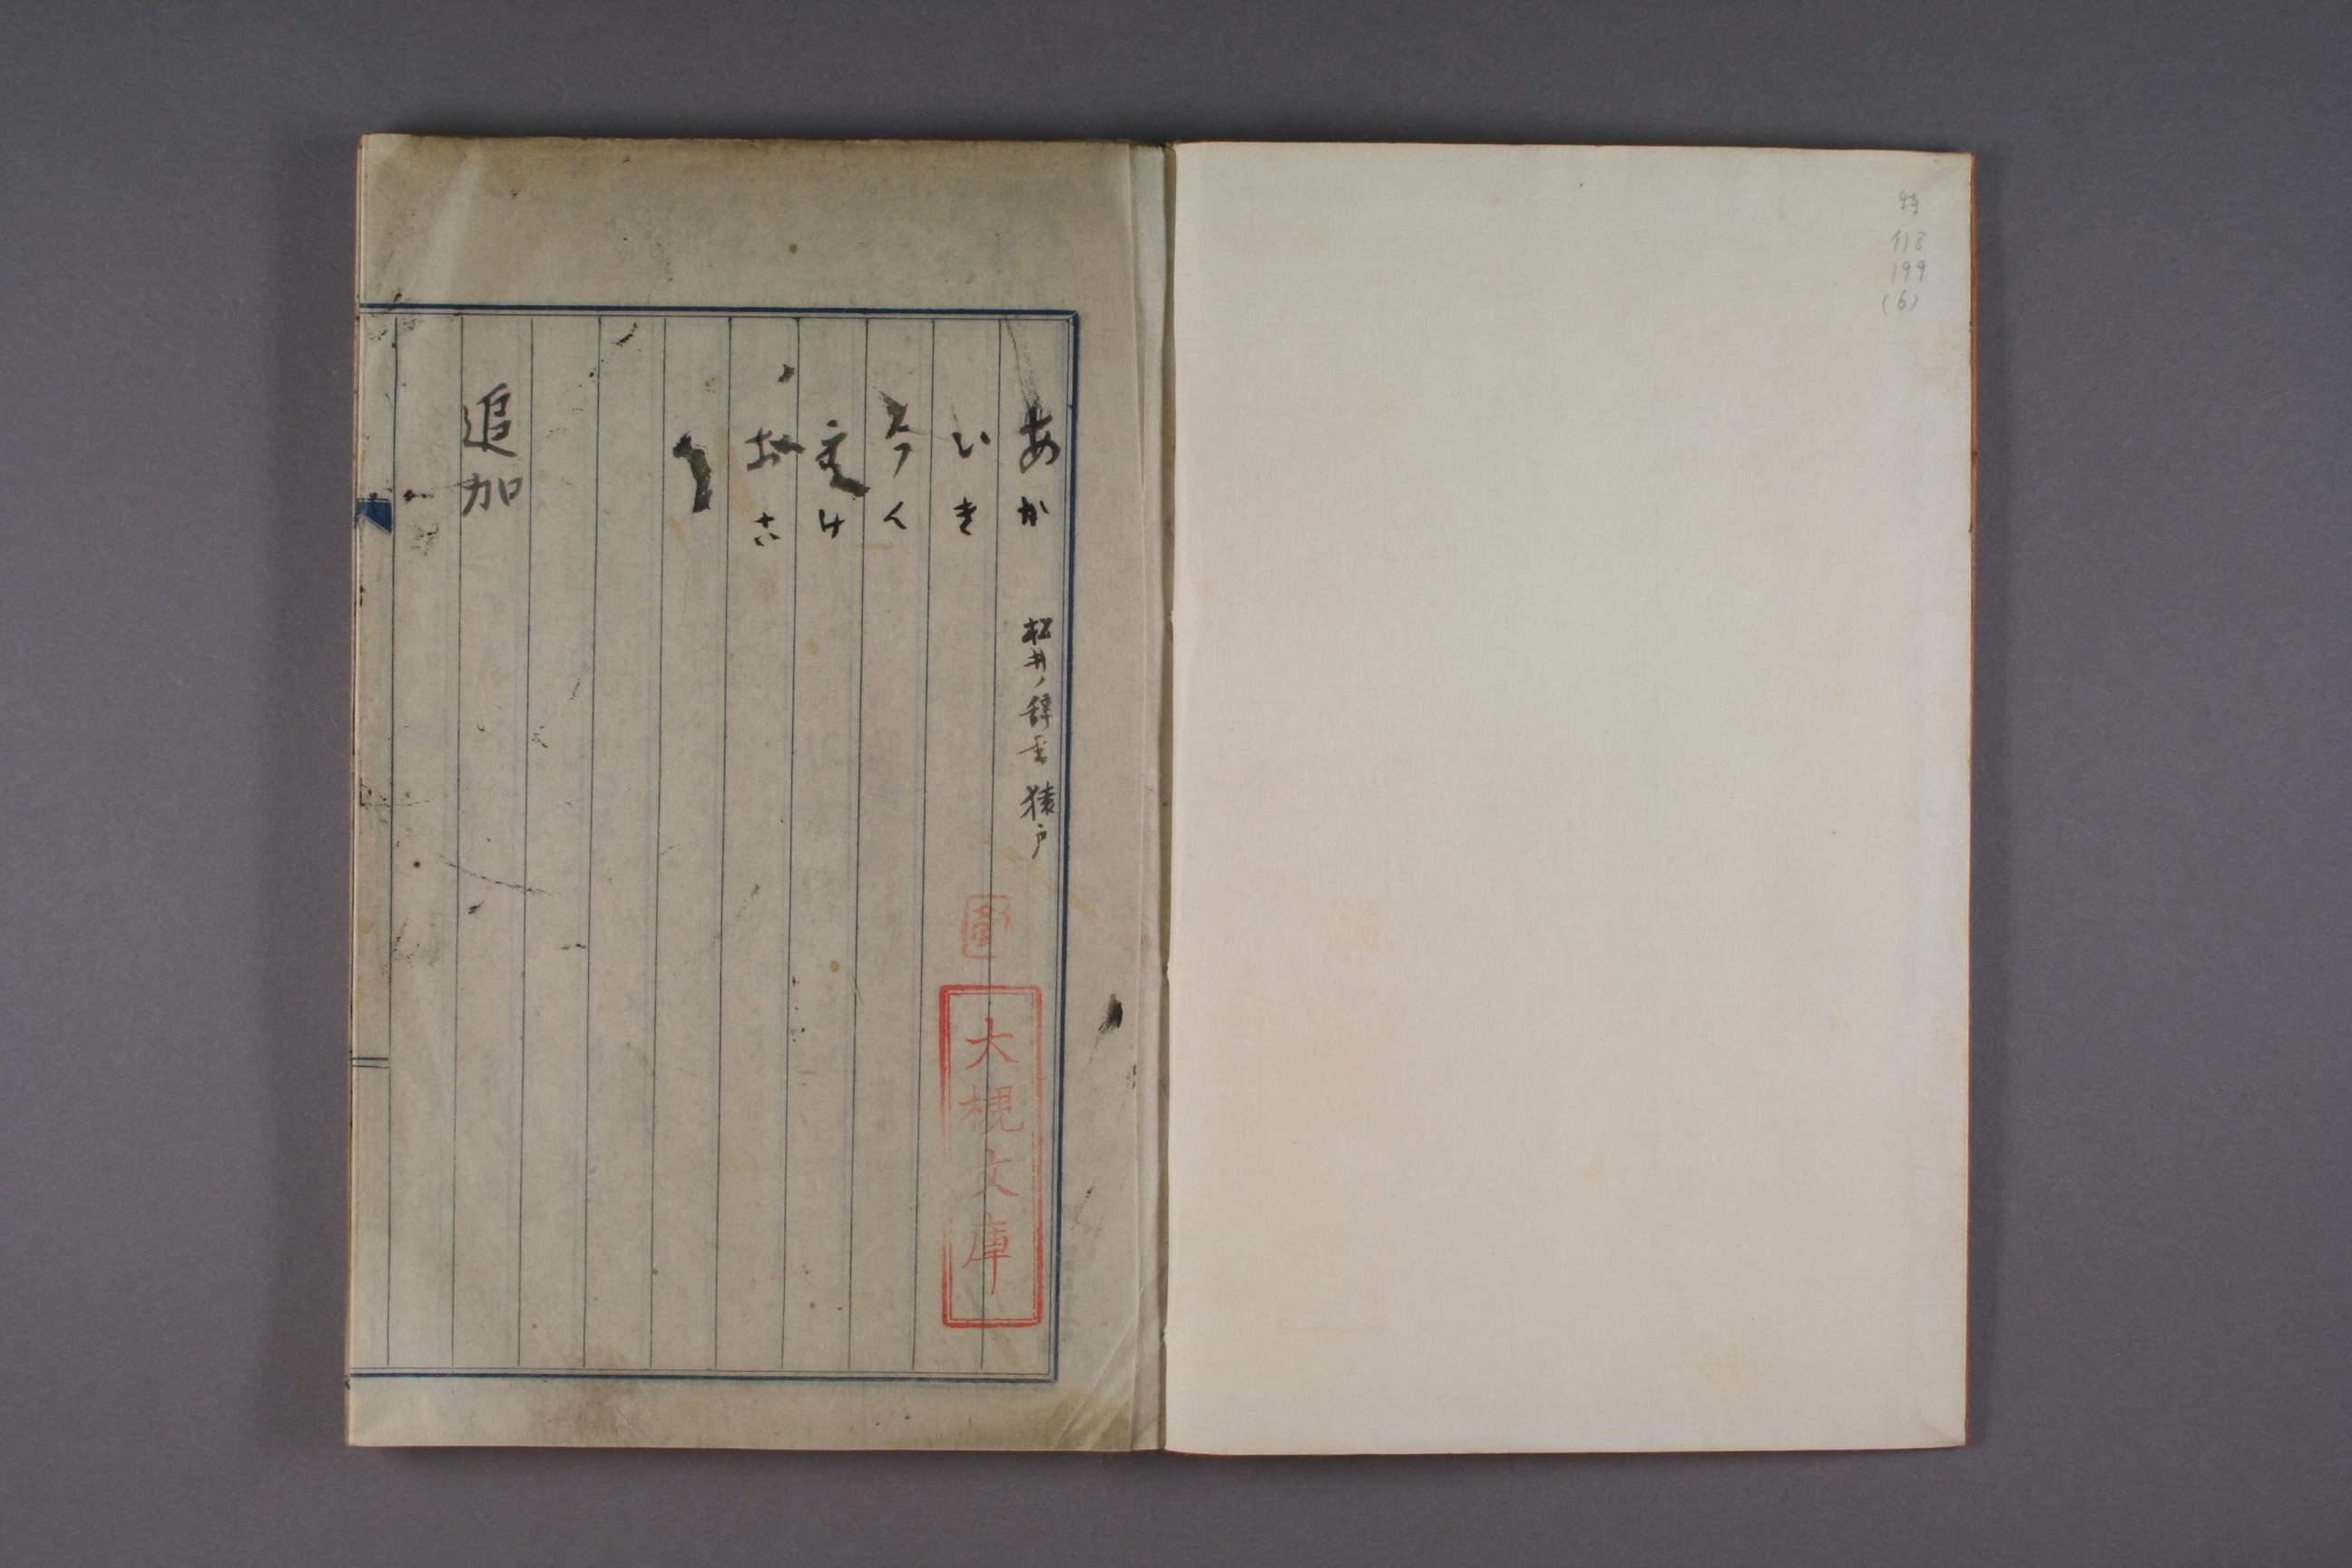 特
118
199
(6)
あか
いき
うく
えけ
おこ
松井ノ辞書 猿戸
大槻文庫
追加